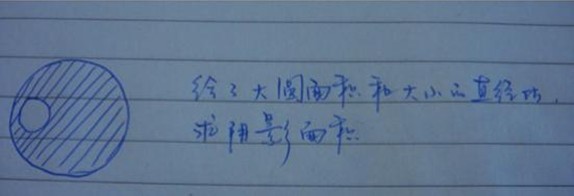 给了大圆面积和大小的直径比,
求阴影面积